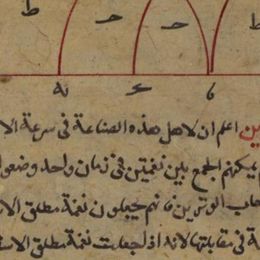 ط ح ح ط
ه ع ٦
ين اعلم ان لاهل هذه الصناعة فى سرعة الا
يمكنهم الجمع بين نغمتين فى زمان واحد وضعوا
الوترين فانهم يجعلون نغمة مطلق الا
ة فى مقابلتها لانه اذا جعلت نغمة مطلق الا